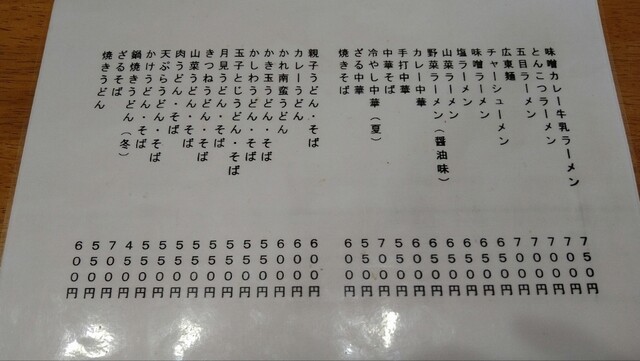 味噌カレー牛乳ラーメン 750円
とんこつラーメン 700円
五目ラーメン 700円
広東麺 700円
チャーシューメン 700円
味噌ラーメン
塩ラーメン
山菜ラーメン
野菜ラーメン(醤油味)
カレー中華
手打中華
中華そば
冷やし中華(夏) 700円
ざる中華
焼きそば 600円
親子うどん・そば 600円
カレーうどん 600円
かれ南蛮うどん 600円
かき玉うどん・そば 550円
かしわうどん・そば 550円
玉子とじうどん・そば 550円
月見うどん・そば 550円
きつねうどん・そば 550円
山菜うどん・そば 550円
肉うどん・そば 550円
天ぷらうどん・そば 550円
かけうどん・そば 450円
鍋焼きうどん・そば(冬) 700円
ざるそば 550円
焼きうどん 600円